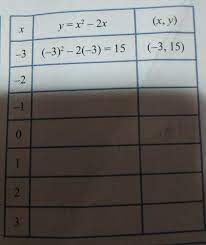 x y = x² − 2x (x, y)
−3 (−3)² − 2(−3) = 15 (−3, 15)
−2
−1
0
1
2
3